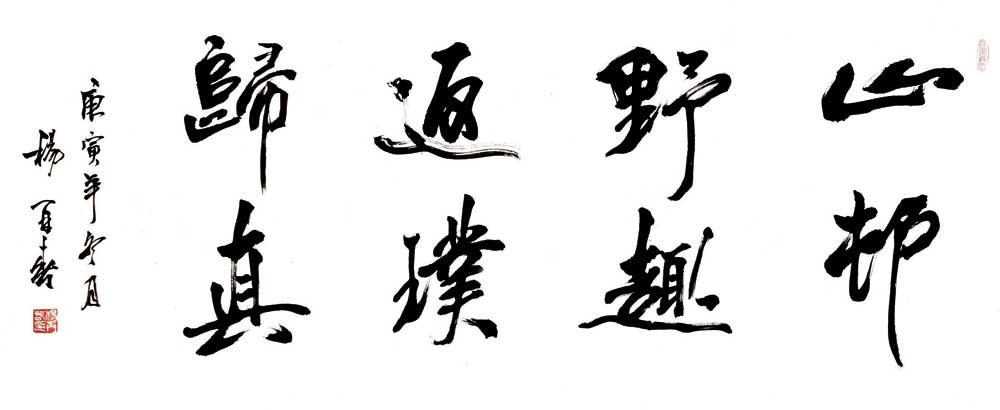 山邨
野趣
返璞
歸真
庚寅年冬月
楊